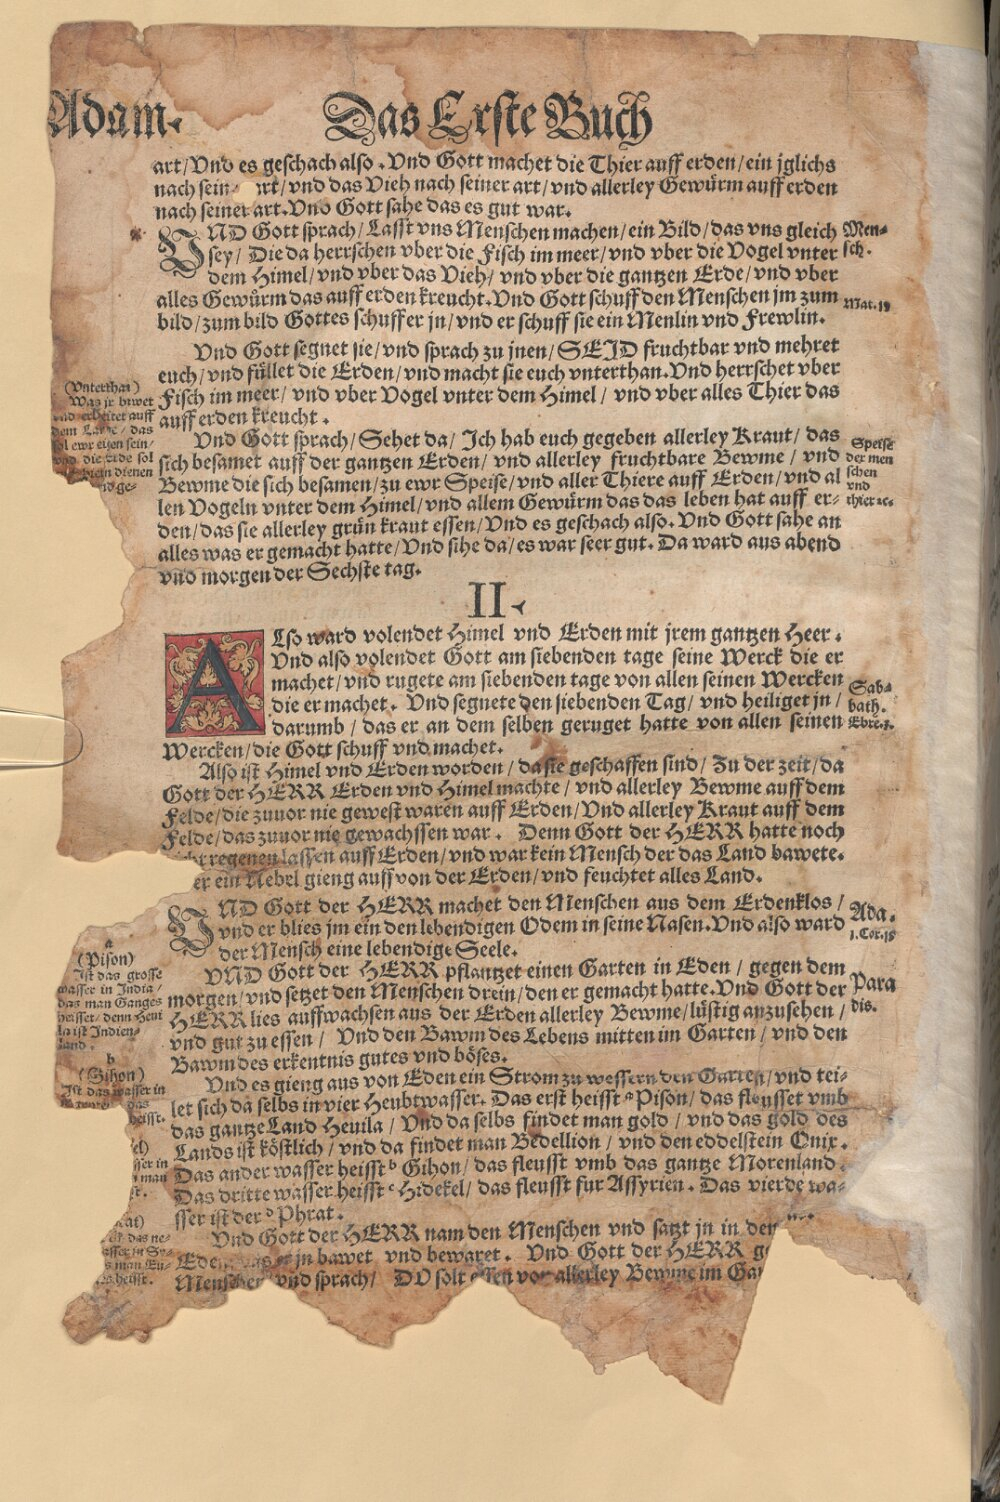 Adam.
Das Erste Buch
art/Vnd es geschach also. Vnd Gott machet die Thier auff erden/ein jglichs
nach sein art/vnd das Vieh nach seiner art/vnd allerley Gewürm auff erden
nach seiner art. Vnd Gott sahe das es gut war.
VND Gott sprach/Lasst vns Menschen machen/ein Bild/das vns gleich
sey/ Die da herrschen vber die Fisch im meer/vnd vber die Vogel vnter
dem Himel/vnd vber das Vieh/ vnd vber die gantzen Erde/vnd vber
alles Gewürm das auff erden kreucht. Vnd Gott schuff den Menschen jm zum
bild/zum bild Gottes schuff er jn/vnd er schuff sie ein Menlin vnd Frewlin.
Men-
sch.
Mat. 19
Vnd Gott segnet sie/vnd sprach zu jnen/SEID fruchtbar vnd mehret
euch/vnd füllet die Erden/vnd macht sie euch vnterthan. Vnd herrschet vber
Fisch im meer/vnd vber Vogel vnter dem Himel/ vnd vber alles Thier das
auff erden kreucht.
(Vnterthan)
Was jr bawet
vnd erbeitet auff
dem Lande/das
sol ewr eigen sein/
vnd die erde sol
dienen
ge-
Vnd Gott sprach/Sehet da/ Ich hab euch gegeben allerley Kraut/das
sich besamet auff der gantzen Erden/ vnd allerley fruchtbare Bewme/ vnd
Bewme die sich besamen/zu ewr Speise/vnd aller Thiere auff Erden/vnd al
len Vogeln vnter dem Himel/vnd allem Gewürm das das leben hat auff er-
den/das sie allerley grün kraut essen/Vnd es geschach also. Vnd Gott sahe an
alles was er gemacht hatte/Vnd sihe da/es war seer gut. Da ward aus abend
vnd morgen der Sechste tag.
Speise
der men
schen
vnd
thier ꝛc.
II.
ALso ward volendet Himel vnd Erden mit jrem gantzen Heer.
Vnd also volendet Gott am siebenden tage seine Werck die er
machet/vnd rugete am siebenden tage von allen seinen Wercken
die er machet. Vnd segnete den siebenden Tag/vnd heiliget jn/
darumb/das er an dem selben geruget hatte von allen seinen
Wercken/die Gott schuff vnd machet.
Sab-
bath.
Ebre. 3.
Also ist Himel vnd Erden worden/da sie geschaffen sind/Zu der zeit/da
Gott der HERR Erden vnd Himel machte/vnd allerley Bewme auff dem
Felde/die zuuor nie gewest waren auff Erden/Vnd allerley Kraut auff dem
Felde/das zuuor nie gewachssen war. Denn Gott der HERR hatte noch
nicht regenen lassen auff Erden/vnd war kein Mensch der das Land bawete.
er ein Nebel gieng auff von der Erden/vnd feuchtet alles Land.
VND Gott der HERR machet den Menschen aus dem Erdenklos/
vnd er blies jm ein den lebendigen Odem in seine Nasen. Vnd also ward
der Mensch eine lebendige Seele.
Ada.
1. Cor. 15
VND Gott der HERR pflantzet einen Garten in Eden/gegen dem
morgen/vnd setzet den Menschen drein/den er gemacht hatte. Vnd Gott der
HERR lies auffwachsen aus der Erden allerley Bewme/lüstig anzusehen/
vnd gut zu essen/ Vnd den Bawm des Lebens mitten im Garten/vnd den
Bawm des erkentnis gutes vnd böses.
Para
dis.
a
(Pison)
Ist das grosse
wasser in India/
das man Ganges
heisset/denn Heui
la ist Indien-
land.
b
(Gihon)
Ist das wasser in
das
heisst.
Vnd es gieng aus von Eden ein Strom zu wessern den Garten/vnd tei-
let sich da selbs in vier Heubtwasser. Das erst heisst a Pison/das fleusset vmb
das gantze Land Heuila/Vnd da selbs findet man gold/vnd das gold des
Lands ist köstlich/vnd da findet man Bedellion/vnd den eddelstein Onix.
Das ander wasser heisst b Gihon/das fleusst vmb das gantze Morenland.
Das dritte wasser heisst c Hidekel/das fleusst fur Assyrien. Das vierde wa-
sser ist der d Phrat.
el)
sser in
man
st.
rat)
ist das ne-
sser in Sy-
s man Eu-
s heisst.
Vnd Gott der HERR nam den Menschen vnd satzt jn in den
Eden jn bawet vnd bewaret. Vnd Gott der HERR ge
Menschen vnd sprach/ DV solt essen von allerley Bewme im Gar